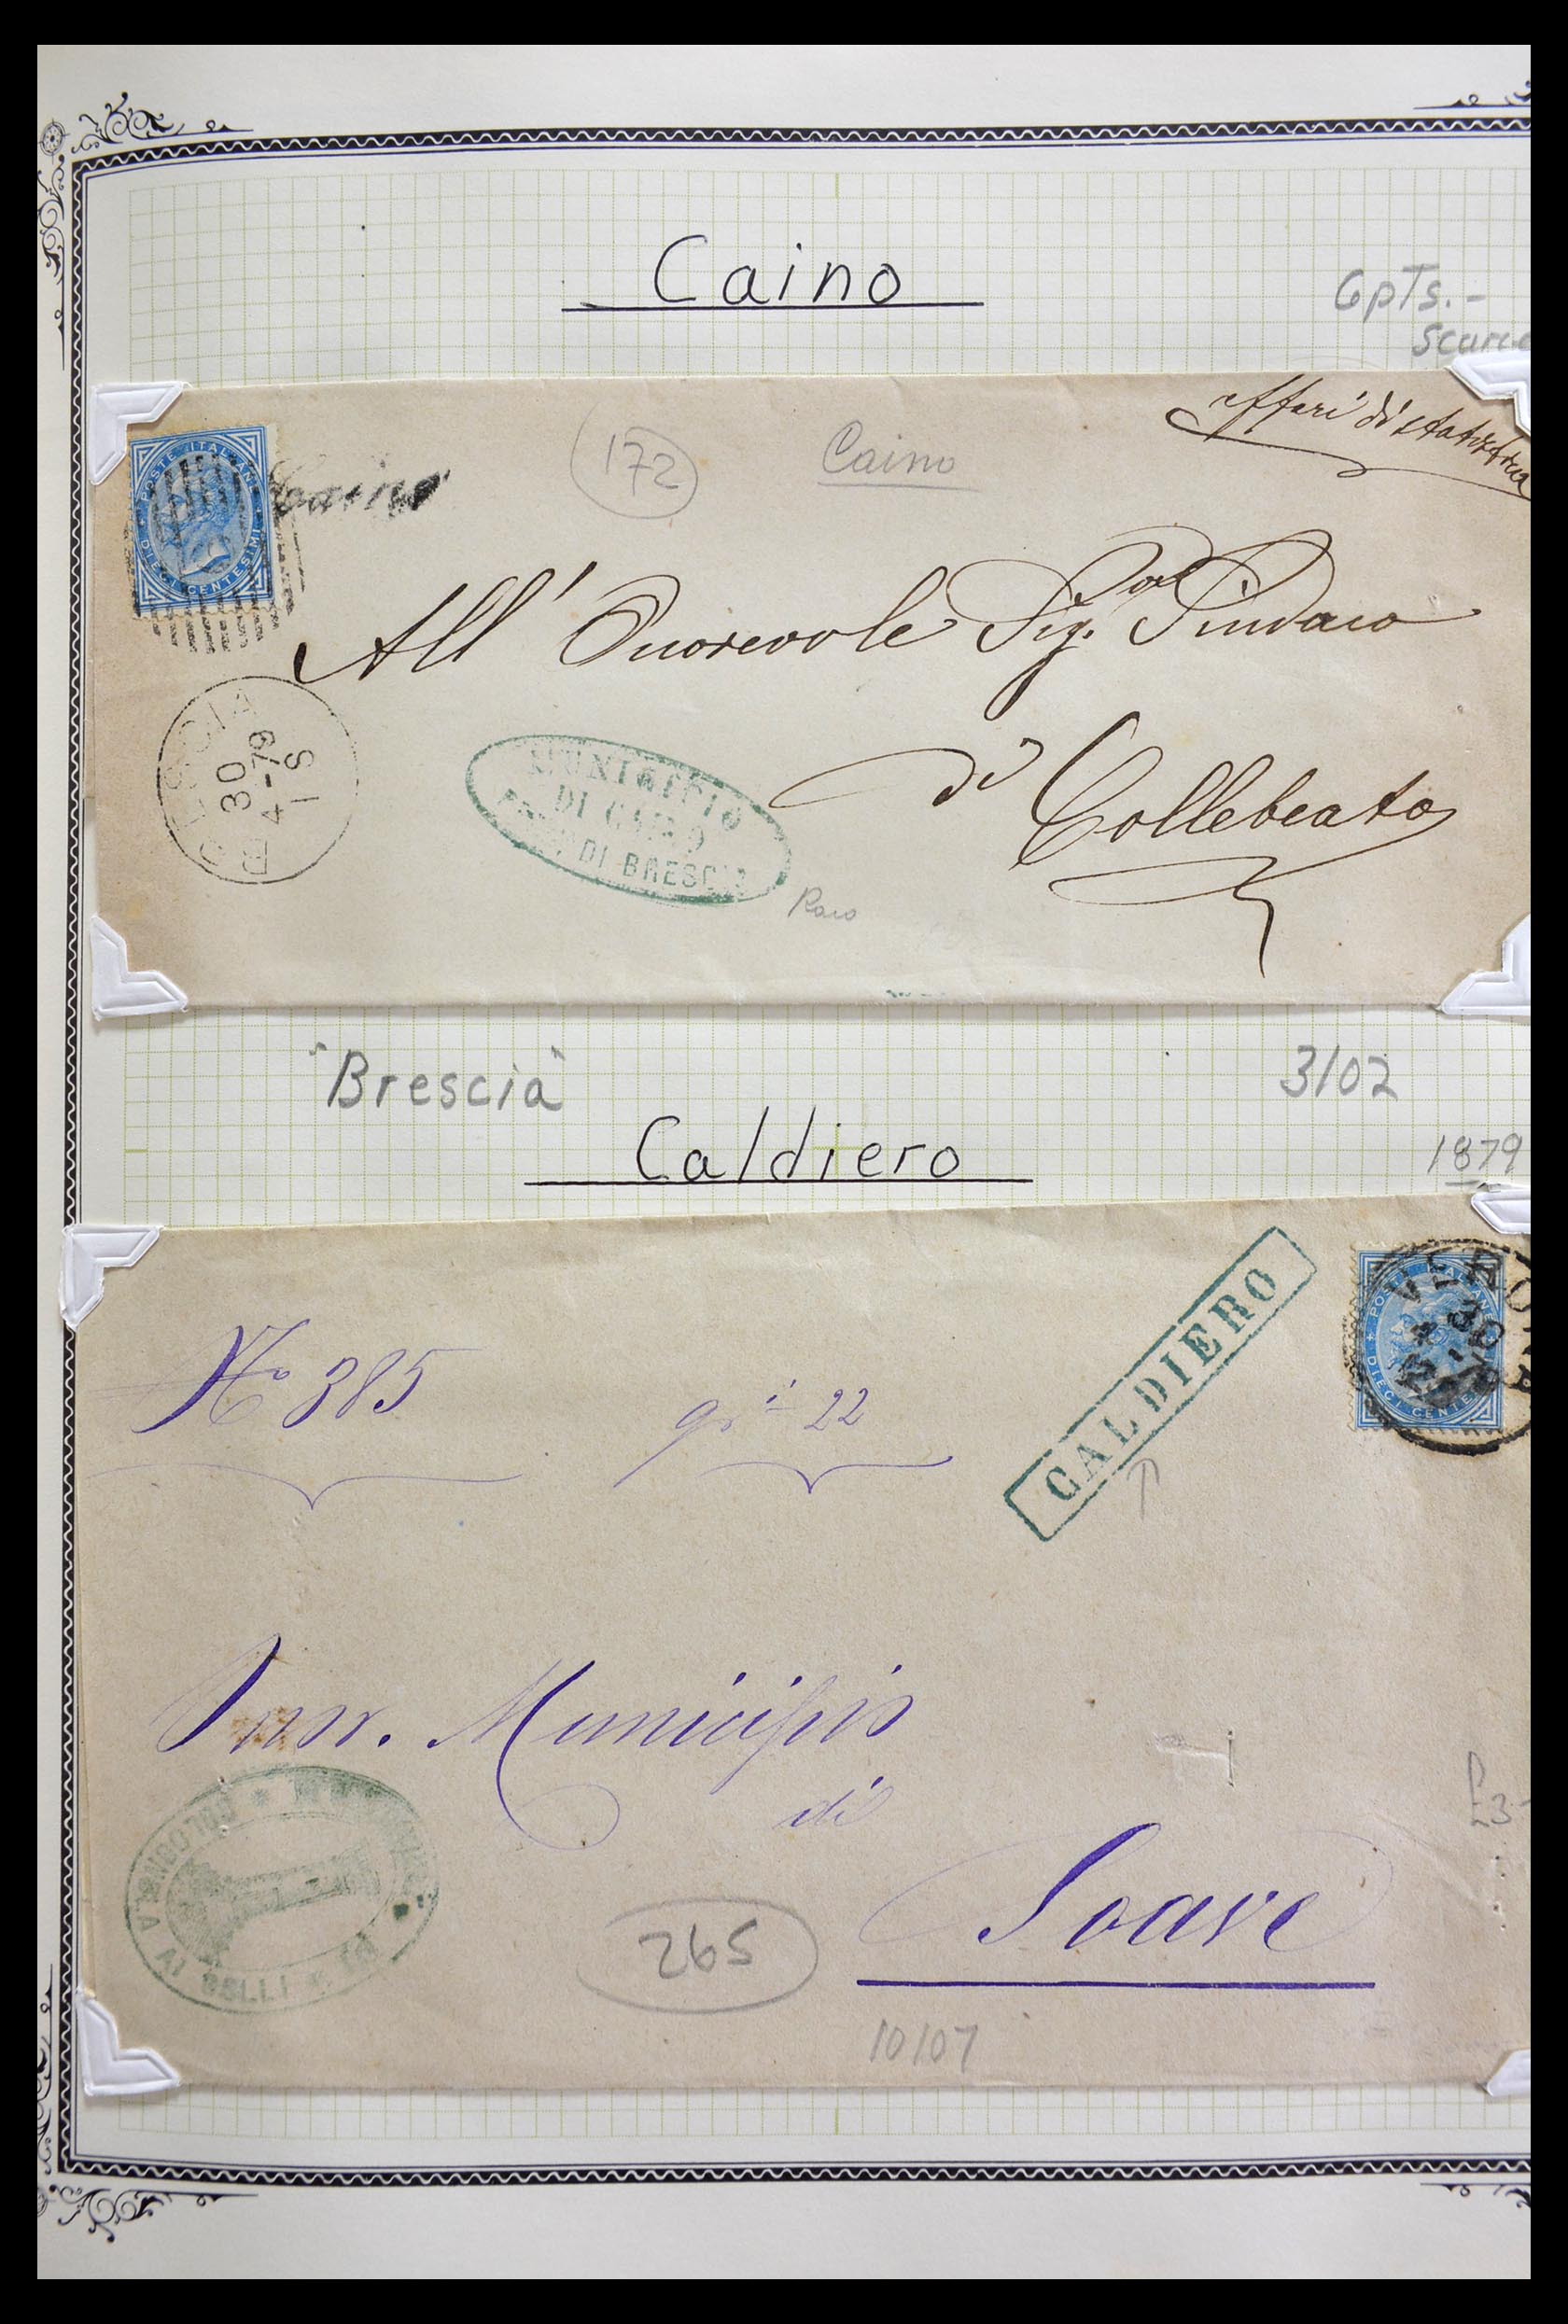 Caino
6 pTs.-
Scarce
affari di statistica
172
Caino
POSTE ITALIANE
DIECI CENTESIMI
Caino
All' Onorevole Sig.or Sindaco
di Collebeato
BRESCIA
30
4-79
1 S
MUNICIPIO
DI CAINO
DI BRESCIA
Raro
"Brescia"
3/02
Caldiero
1879
No 385
22
CALDIERO
POSTE ITALIANE
DIECI CENTE
VERONA
Municipio
di
Soave
COLOGNOLA AI COLLI
265
£3-
10/07